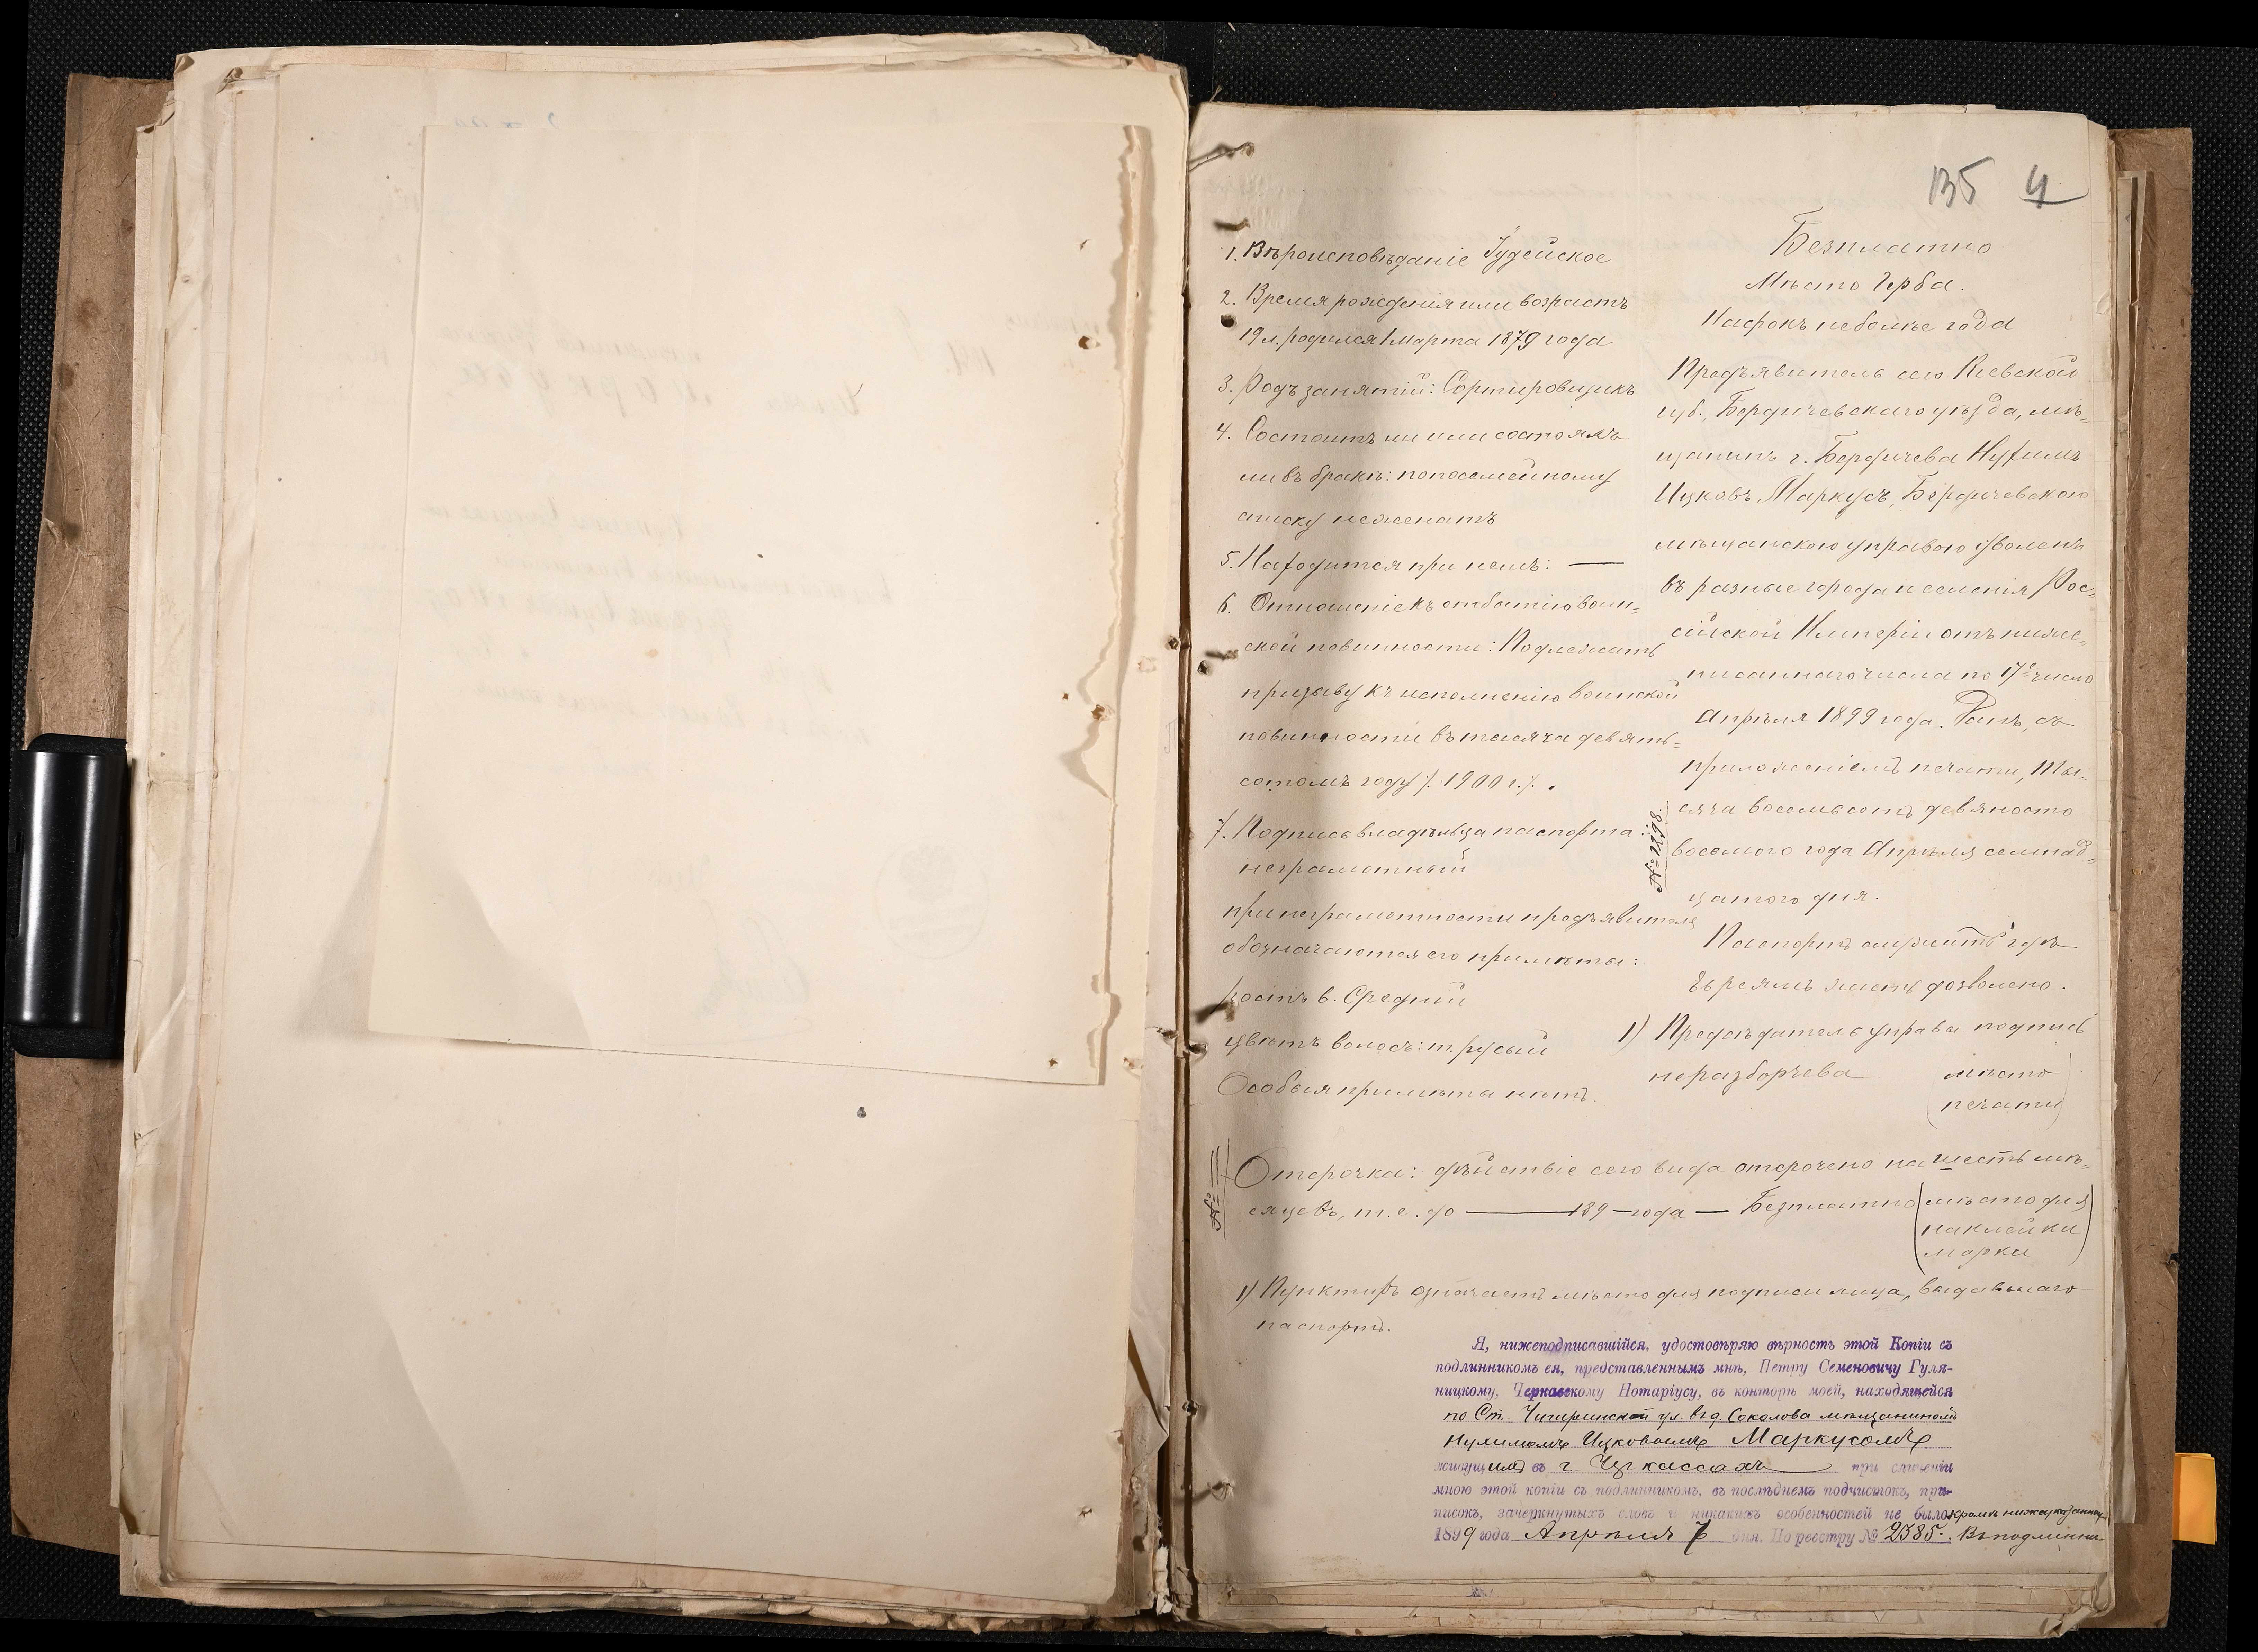 135 4
1. Вѣроисповѣданіе Іудейское
2. Время рожденія или возрастъ
19 л. родился 1 Марта 1879 года
3. Родъ занятій: Сортировщикъ
4. Состоитъ ли или состоялъ
ли въ бракѣ: по посемейному
списку неженатъ
5. Находится при немъ: —
6. Отношеніе къ отбытію воин-
ской повинности: Подлежитъ
призыву къ исполненію воинской
повинности въ тысяча девять-
сотомъ году /. 1900 г./.
7. Подпись владѣльца паспорта:
неграмотный
при неграмотности предъявителя
обозначаются его примѣты:
ростъ в. Средній
цвѣтъ волосъ: т. русый
Особыя примѣты нѣтъ.
Безплатно
Мѣсто Герба.
На срокъ не болѣе года
Предъявитель сего Кіевской
губ., Бердичевскаго уѣзда, мѣ-
щанинъ г. Бердичева Нухимъ
Ицковъ Маркусъ, Бердичевскою
мѣщанскою управою уволенъ
въ разные города и селенія Рос-
сійской Имперіи отъ ниже-
писаннаго числа по 17е число
Апрѣля 1899 года. Данъ, съ
приложеніемъ печати, ты-
сяча восемьсотъ девяносто
восьмого года Апрѣля семнад-
цатого дня.
Паспортъ служитъ годъ
Евреямъ жить дозволено.
1) Предсѣдатель управы подпись
неразборчева
мѣсто
печати
Отсрочка: дѣйствіе сего вида отсрочено на шесть мѣ-
сяцевъ, т. е. до — 189 — года — Безплатно
мѣсто для
наклейки
марки
1) Пунктиръ означаетъ мѣсто для подписи лица, выдавшаго
паспортъ.
Я, нижеподписавшійся, удостовѣряю вѣрность этой Копіи съ
подлинникомъ ея, представленнымъ мнѣ, Петру Семеновичу Гуля-
ницкому, Черкасскому Нотаріусу, въ конторѣ моей, находящейся
по Ст. Чигиринской ул. въ д. Соколова мѣщаниномъ
Нухимомъ Ицковымъ Маркусомъ
живущимъ въ г. Черкассахъ при сличеніи
мною этой копіи съ подлинникомъ, въ послѣднемъ подчистокъ, при-
писокъ, зачеркнутыхъ словъ и никакихъ особенностей не было кромѣ нижеуказанныхъ.
1899 года Апрѣля 7 дня. По реестру № 2385. Въ подлинни